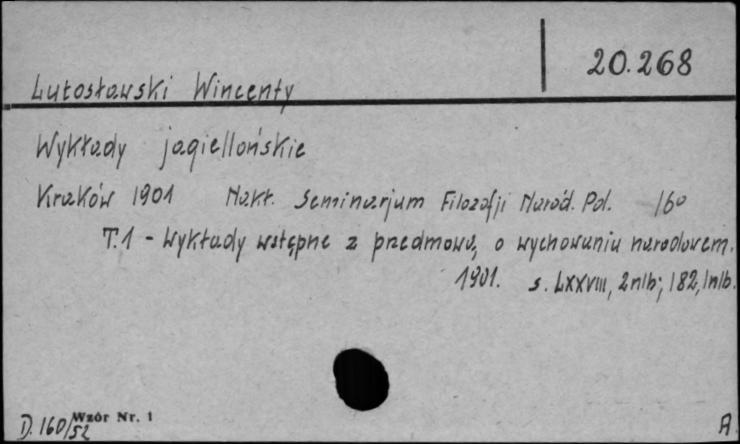 20.268
Lutosławski Wincenty
Wykłady jagiellońskie
Kraków 1901 Nakł. Seminarjum Filozofji Naród. Pol. 16°
T.1 - Wykłady wstępne z przedmową, o wychowaniu narodowem.
1901. s. LXXVIII, 2nlb; 182, 1nlb.
Wzór Nr. 1
D. 160/52
A